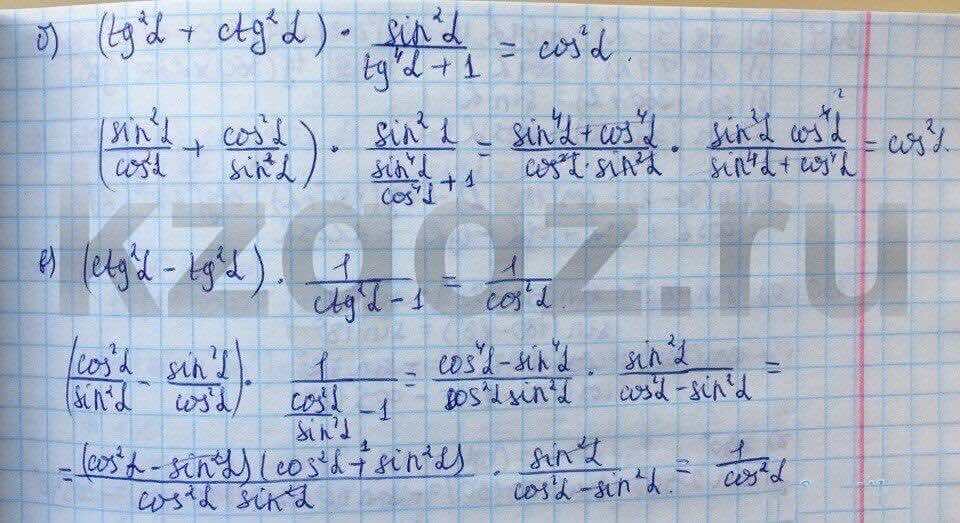 б) (tg²α + ctg²α) · sin²α / (tg⁴α + 1) = cos²α.
(sin²α/cos²α + cos²α/sin²α) · sin²α / (sin⁴α/cos⁴α + 1) = (sin⁴α + cos⁴α)/(cos²α · sin²α) · (sin²α cos⁴α)/(sin⁴α + cos⁴α) = cos²α.
kzgdz.ru
в) (ctg²α - tg²α) · 1/(ctg²α - 1) = 1/cos²α.
(cos²α/sin²α - sin²α/cos²α) · 1/(cos²α/sin²α - 1) = (cos⁴α - sin⁴α)/(cos²α sin²α) · sin²α/(cos²α - sin²α) =
= (cos²α - sin²α)(cos²α + sin²α)/(cos²α sin²α) · sin²α/(cos²α - sin²α) = 1/cos²α